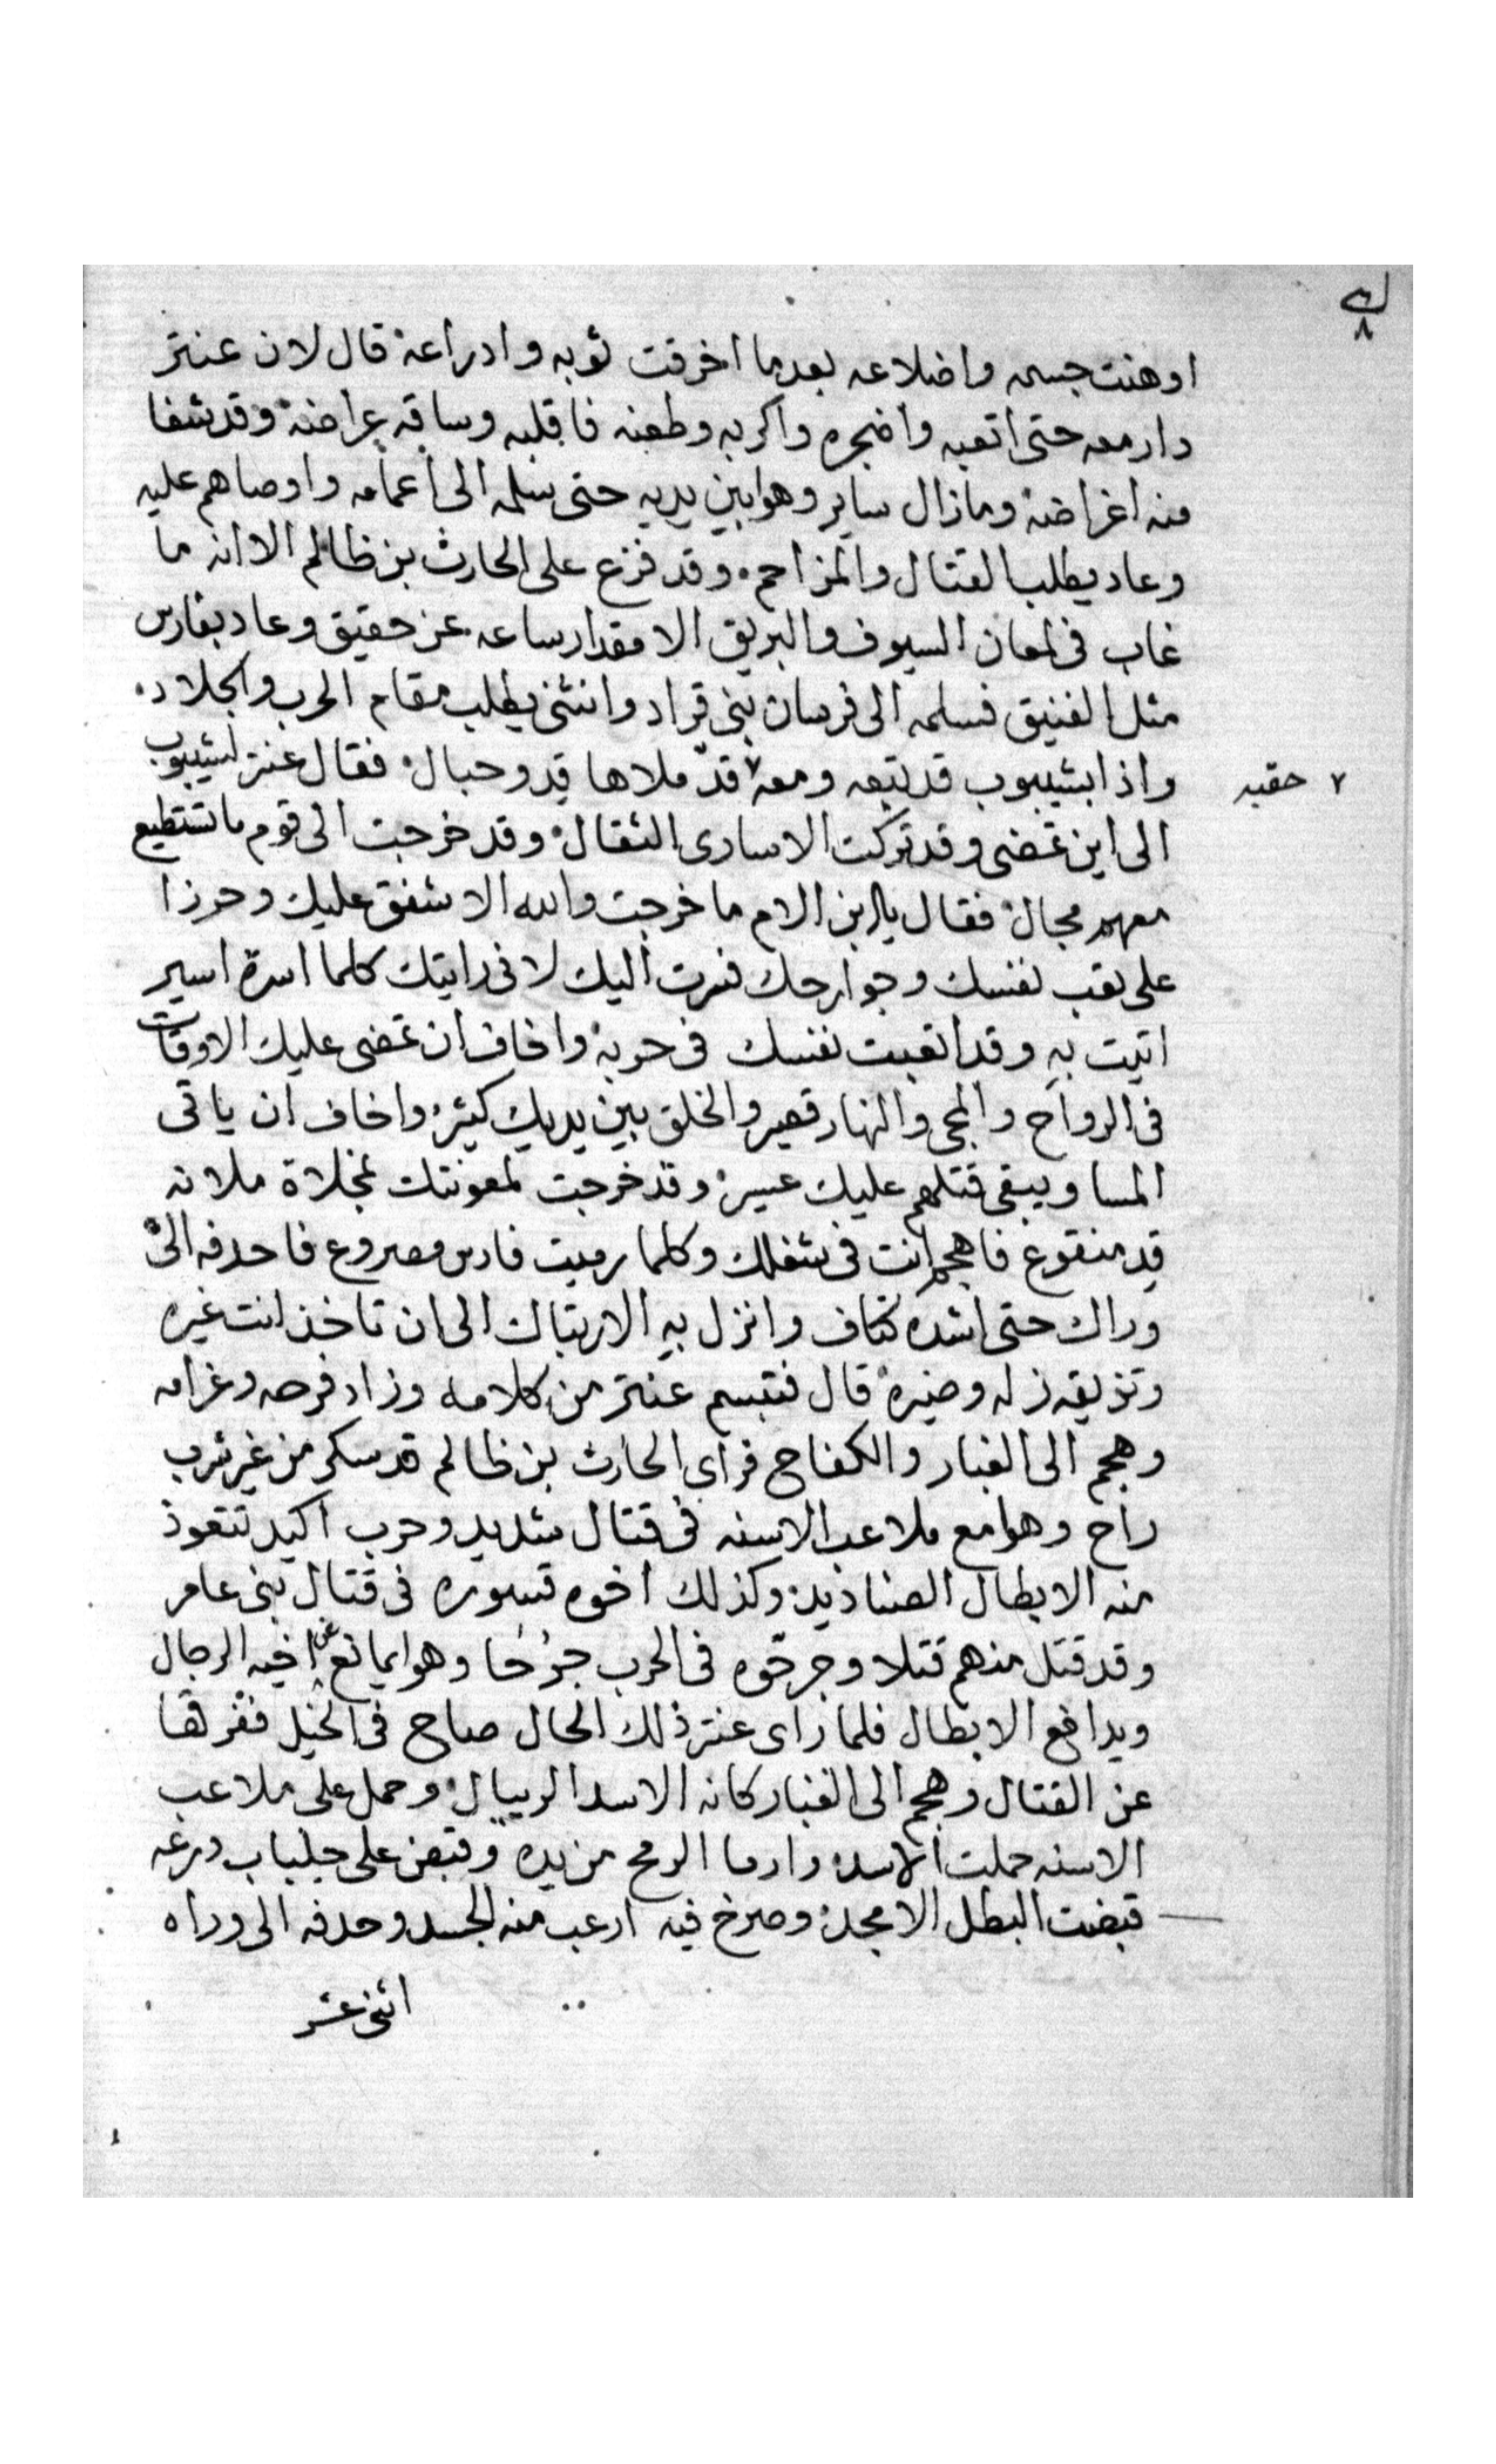 اوهنت جسمه واضلاعه بعدما اخرقت ثوبه وادراعه قال لان عنتر
دار معه حتى اتعبه واضجره واكربه وطعنه فاقلبه وساقه عراضه وقد شفا
منه اغراضه ومازال ساير وهوا بين يديه حتى سلمه الى اعمامه واوصاهم عليه
وعاد يطلب القتال والمزاحمه وقد فزع على الحارث بن ظالم الا انه ما
غاب فى لمعان السيوف والبريق الا مقدار ساعه عن حقيق وعاد بفارس
مثل الفنيق فسلمه الى فرسان بنى قراد وانثنى يطلب مقام الحرب والجلاد
واذا بشيبوب قد تبعه ومعه ٧ قد ملاها قد وحبال فقال عنتر لشيبوب
٧ حقيبه
الى اين تمضى وقد تركت الاسارى الثقال وقد خرجت الى قوم ما تستطيع
معهم مجال فقال يا ابن الام ما خرجت والله الا شفق عليك وحرزا
على تعب نفسك وجوارحك فسرت اليك لانى رايتك كلما اسرة اسير
اتيت به وقد اتعبت نفسك فى حربه واخاف ان تمضى عليك الاوقات
فى الرواح والمجى والنهار قصير والخلق بين يديك كثير واخاف ان ياتى
المسا ويبقى قتلهم عليك عسير وقد خرجت لمعونتك بمخلاة ملانه
قد منقوع فاهجم انت فى شغلك وكلما رميت فارس مصروع فاحدفه الى
وراك حتى اشده كتاف وانزل به الارتباك الى ان تاخذ انت غيره
وتذيقه زله وضيره قال فتبسم عنتر من كلامه وزاد فرحه وغرامه
وهجم الى الغبار والكفاح فراى الحارث بن ظالم قد سكر من غير شرب
راح وهوا مع ملاعب الاسنه فى قتال شديد وحرب اكيد تتعوذ
منه الابطال الصناديد وكذلك اخوه قسوره فى قتال بنى عامر
وقد قتل منهم قتلا وجرحوه فى الحرب جرحا وهوا يمانع عن اخيه الرجال
ويدافع الابطال فلما راى عنتر ذلك الحال صاح فى الخيل ففرقها
عن القتال وهجم الى الغبار كانه الاسد الريبال وحمل على ملاعب
الاسنه حملت الاسد وارما الرمح من يده وقبض على جلباب درعه
قبضت البطل الامجد وصرخ فيه ارعب منه الجسد وحدفه الى وراه
اثنى عشر